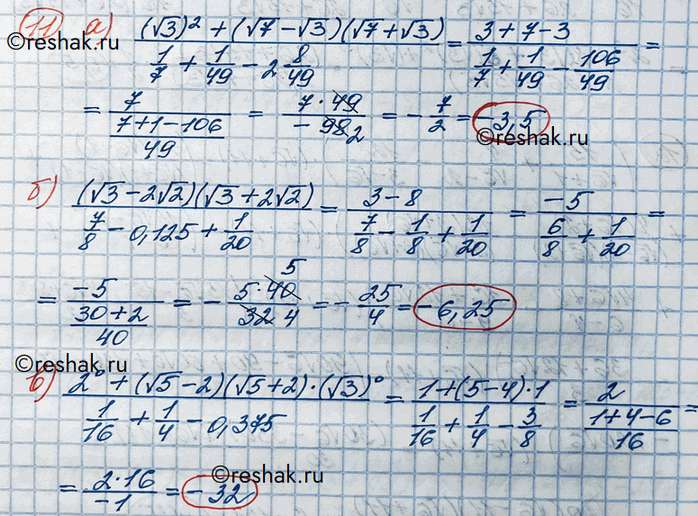 11) а) ((√3)² + (√7 − √3)(√7 + √3)) / (1/7 + 1/49 − 2 8/49) = (3 + 7 − 3) / (1/7 + 1/49 − 106/49) =
©reshak.ru
= 7 / ((7 + 1 − 106)/49) = (7 · 49) / (− 98 2) = − 7/2 = −3,5
©reshak.ru
б) ((√3 − 2√2)(√3 + 2√2)) / (7/8 − 0,125 + 1/20) = (3 − 8) / (7/8 − 1/8 + 1/20) = −5 / (6/8 + 1/20) =
= −5 / ((30 + 2)/40) = − (5 · 40 5) / (32 4) = − 25/4 = −6,25
©reshak.ru
©reshak.ru
в) (2⁰ + (√5 − 2)(√5 + 2) · (√3)⁰) / (1/16 + 1/4 − 0,375) = (1 + (5 − 4) · 1) / (1/16 + 1/4 − 3/8) = 2 / ((1 + 4 − 6)/16) =
= (2 · 16) / −1 = −32
©reshak.ru